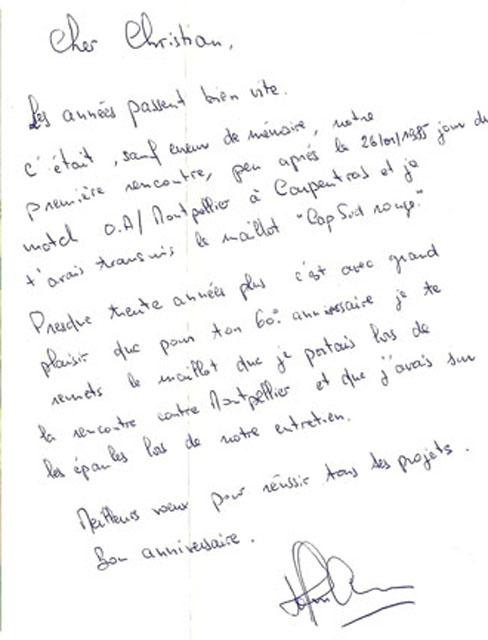 Cher Christian,
Les années passent bien vite.
c'était, sauf erreur de mémoire, notre
première rencontre, peu après le 26/01/1985 jour du
match O.A/Montpellier à Carpentras et je
t'avais transmis le maillot "Cap Sud rouge."
Presque trente années plus c'est avec grand
plaisir que pour ton 60° anniversaire je te
remets le maillot que je portais lors de
la rencontre contre Montpellier et que j'avais sur
les épaules lors de notre entretien.
Meilleurs voeux pour réussir tous tes projets.
Bon anniversaire.